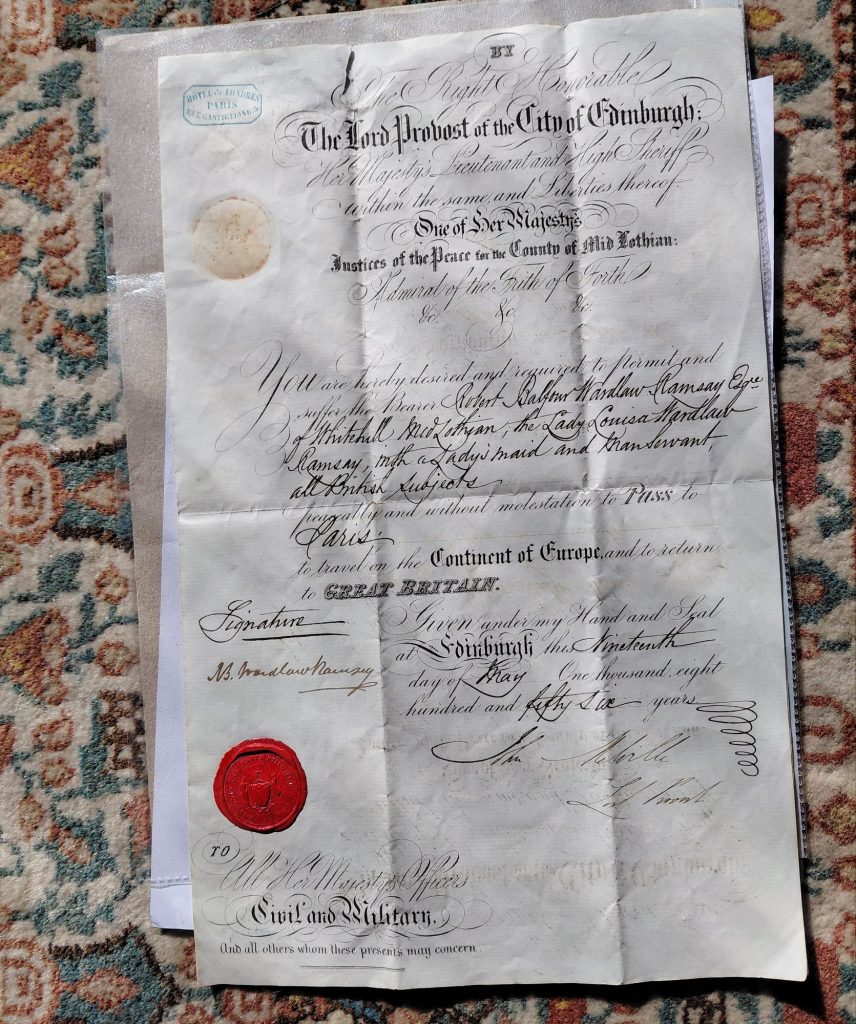 BY
The Right Honorable
The Lord Provost of the City of Edinburgh:
Her Majesty's Lieutenant and High Sheriff
within the same, and Liberties thereof
One of Her Majesty's
Justices of the Peace for the County of Mid Lothian:
Admiral of the Frith of Forth
&c. &c. &c.
HOTEL de LONDRES
PARIS
RUE CASTIGLIONE, 5
You are hereby desired and required to permit and
suffer the Bearer Robert Balfour Wardlaw Ramsay Esqre
of Whitehill, Mid Lothian, the Lady Louisa Wardlaw
Ramsay, with a Lady's maid and Man Servant,
all British Subjects
peaceably and without molestation to Pass to
Paris.
to travel on the Continent of Europe, and to return
to GREAT BRITAIN.
Signature
Wardlaw Ramsay
Given under my Hand and Seal
at Edinburgh this Nineteenth
day of May One thousand eight
hundred and fifty six years
John Melville
Lord Provost
TO
All Her Majesty's Officers
Civil and Military,
And all others whom these presents may concern.